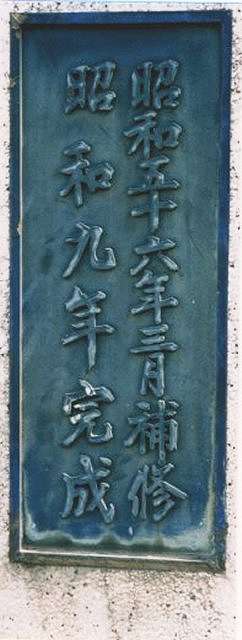 昭和五十六年三月補修
昭和九年完成